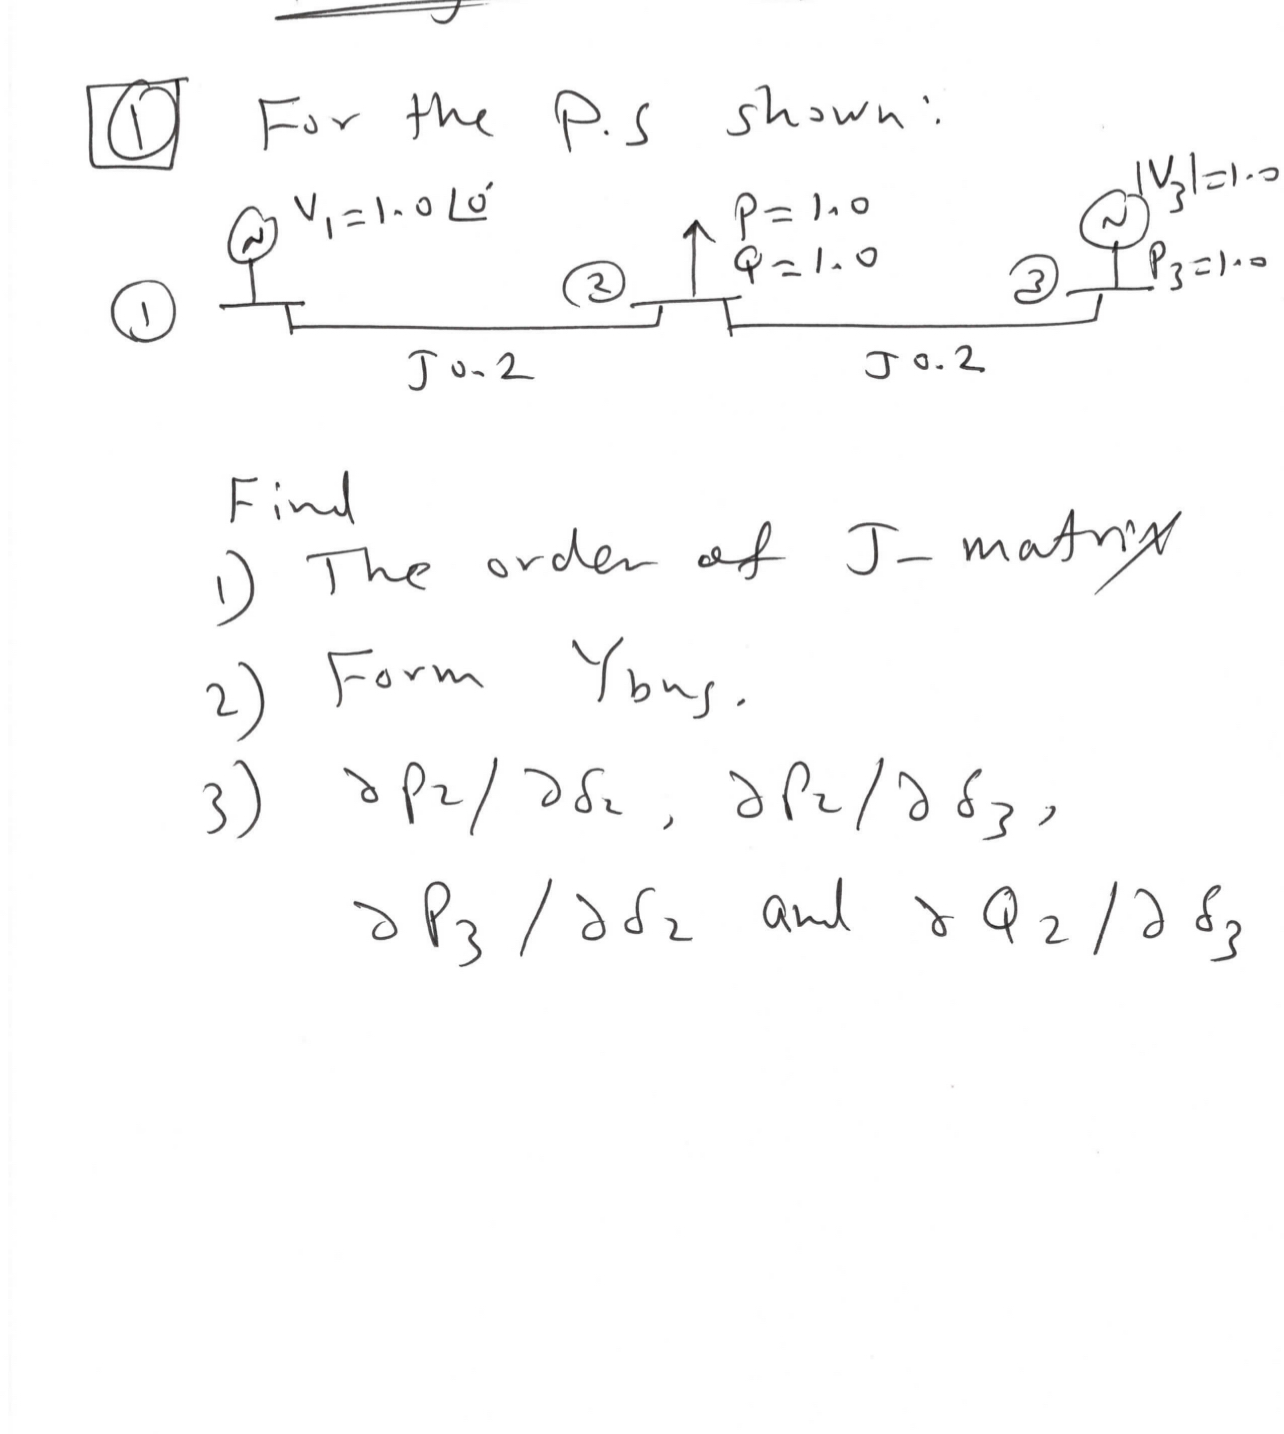 1 For the P.S shown:
V₁=1.0∠0° P=1.0 |V₃|=1.0
Q=1.0 P₃=1.0
1 2 3
J0.2 J0.2
Find
1) The order of J-matrix
2) Form Ybus.
3) ∂P₂/∂δ₂, ∂P₂/∂δ₃,
∂P₃/∂δ₂ and ∂Q₂/∂δ₃